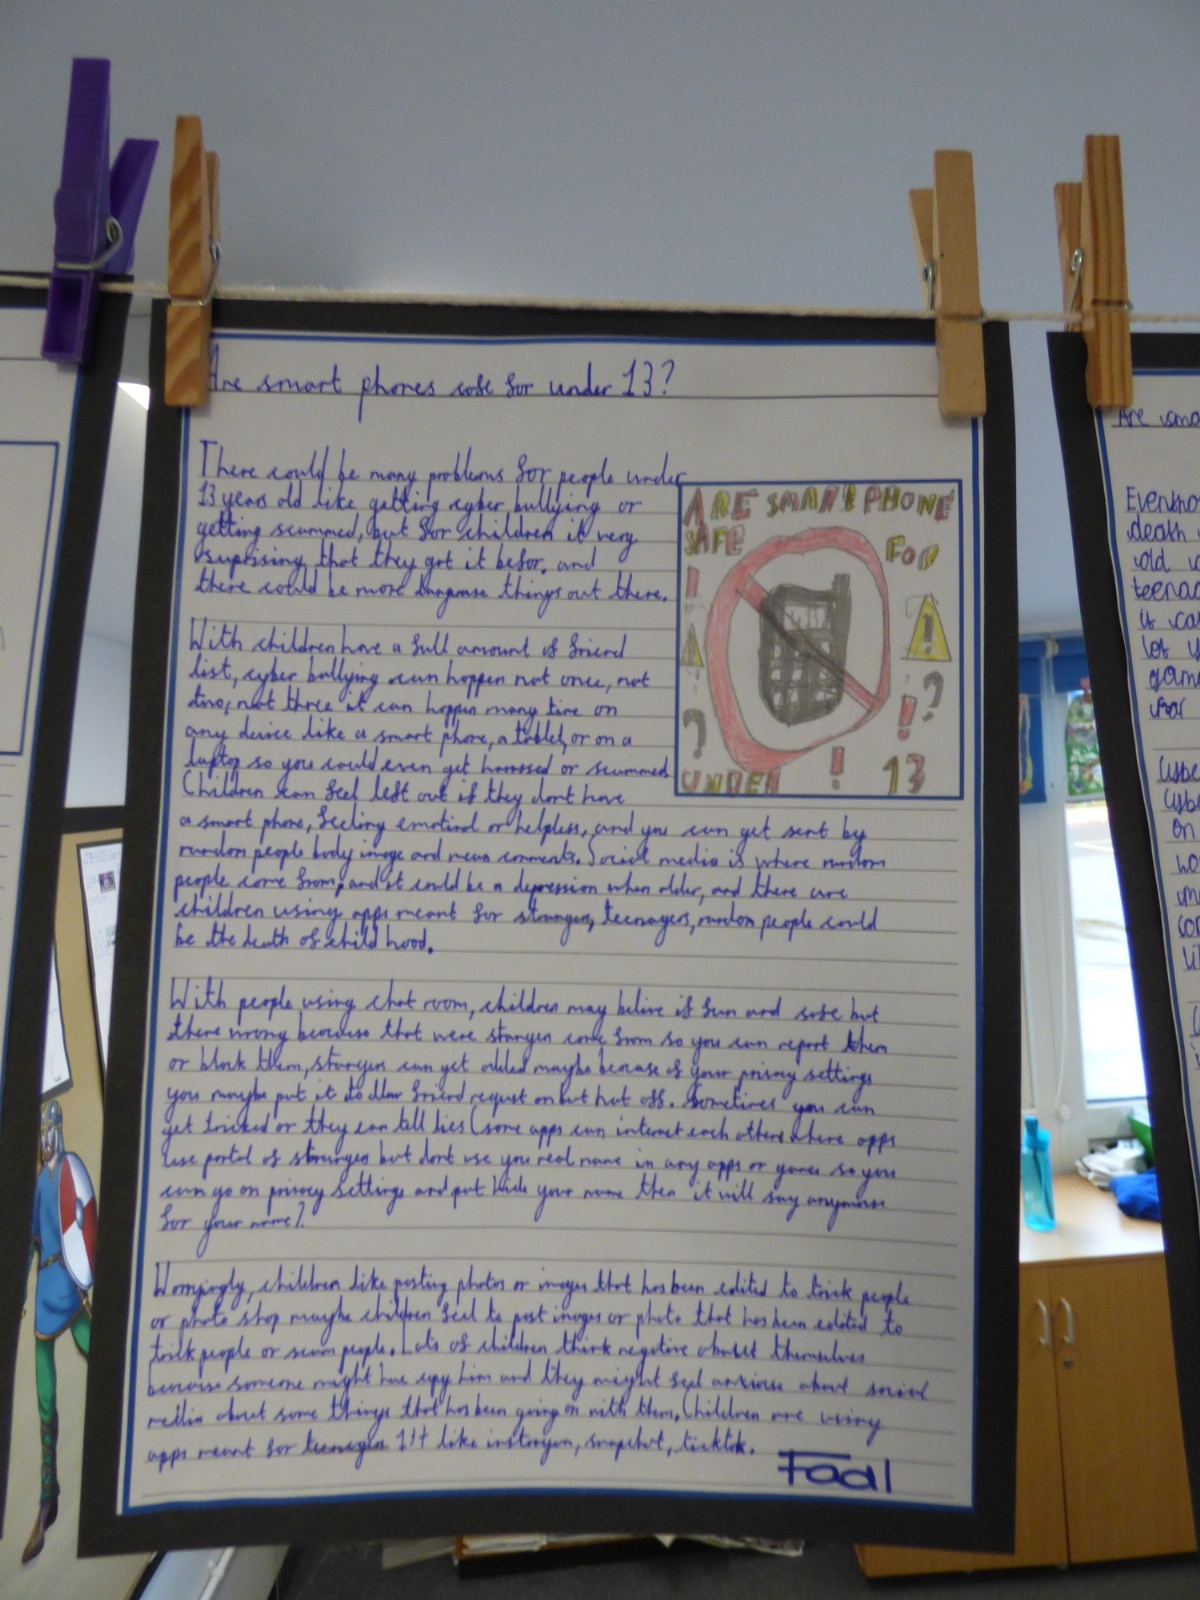 Are smart phones safe for under 13?
There could be many problems for people under
13 years old like getting cyber bullying or
getting scammed, but for children it very
suprising that they got it befor. and
there could be more things out there.
With children have a full amount of friend
list, cyber bullying can happen not once, not
two, not three it can happen many time on
any device like a smart phone, a tablet, or on a
laptop so you could even get harassed or scammed
Children can feel left out if they dont have
a smart phone, feeling emotinal or helpless, and you can get sent by
random people body image and mean comments. Social media is where random
people come from, and it could be a depression when older, and there are
children using apps meant for strangers, teenagers, random people could
be the death of child hood.
With people using chat room, children may belive if fun and safe but
there wrong because that were stanges come from so you can report them
or block them, stanges can get added maybe because of your privacy settings
you maybe put it to allow friend requst on but not off. Sometimes you can
get tricked or they can tell lies (some apps can interact each other where apps
use portal of strangers but dont use you real name in any apps or games so you
can go on privacy settings and put hide your name then it will say anymous
for your name).
Worryingly, children like posting photos or images that has been edited to trick people
or photo shop maybe children feel to post images or photo that has been edited to
trick people or scam people. Lots of children think negative about themselves
because someone might have him and they might feel about social
media about some things that has been going on with them. Children are using
apps meant for like instargam, snapchat, ticktok.
Fadl
ARE SMART PHONE
SAFE
FOR
!
!
?
?
!
!
UNDER
13
Are
death
old
is
on